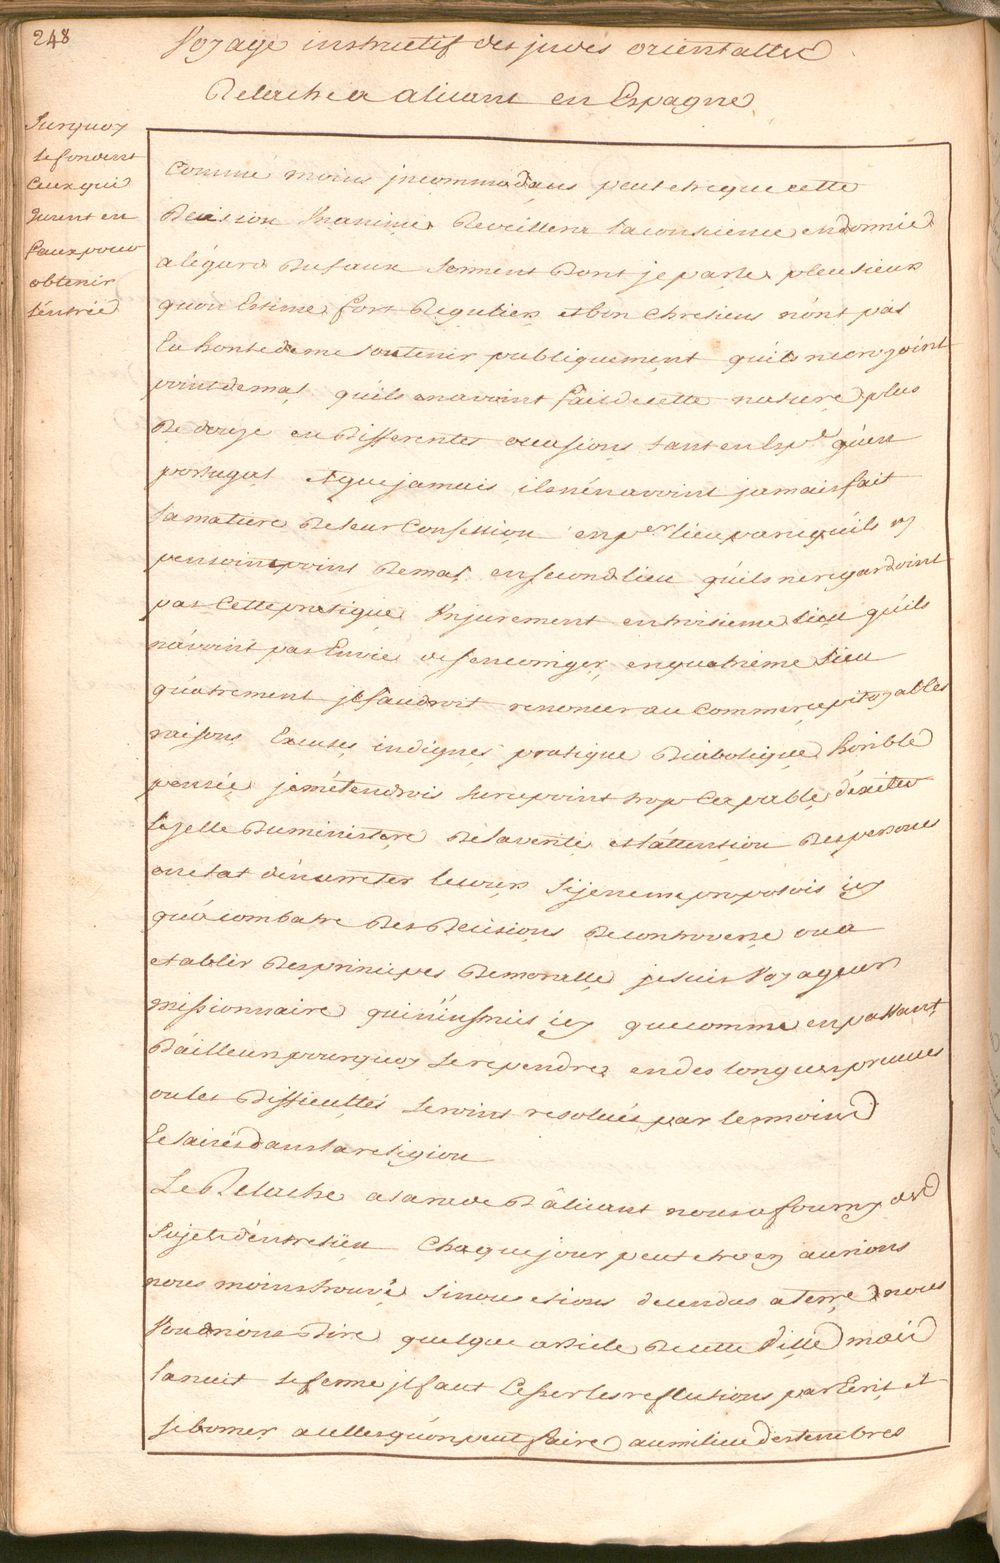 248
Voyage instructif des jndes orientalles
Relache a alicant en Espagne
Surquoy
se fondent
Ceux qui
Jurent en
Faux pour
obtenir
l'entrée
Comme moins jncommodans peut etre que cette
Decision Vnanime Reveillera la conscience endormie
a légard du faux serment dont je parle plusieurs
quon Estime fort Reguliers et bon chretiens nont pas
Eu honte de me soutenir publiquement quils ne croyoint
point de mal quils en avoint fait de cette nature plus
De douze en differentes occasions tant en Esp.e quen
portugal et que jamais ils nén avoint jamais fait
la matiere de leur Confession en p.er lieu parcequils ny
pensoint point de mal en second lieu quils ne regardoint
pas Cette pratique Vnjurement en troisieme lieu quils
navoint pas Envie de sen corriger en quatriéme lieu
quatrement jl faudroit renoncer au Commerce pitoyables
raisons Excuses indignes pratique Diabolique horible
pensée je métendrois sur ce point trop Capable déxiter
le zelle du ministere de la verité et l'attention des personnes
en etat dén arreter le cours si je ne me proposois icy
qu'a combatre des decisions de controverse ou a
etablir des principes de moralle je suis Voyageur
missionnaire qui nínsruis icy que comme en passant
Dailleurs pourquoy se rependre en des longues preuves
ou les difficultés seroint resolues par les moins
Eclairés dans la religion
Le Relache a la rade D'alicant nous a fourny des
sujets déntretien Chaque jour peut etre en aurions
nous moins trouvé si nous etions decendus a terre nous
Voudrions dire quelque article de cette Ville mais
la nuit se ferme jl faut Cesser les reflections par Ecrit et
se borner a celles quón peut faire au milieu des tenebres